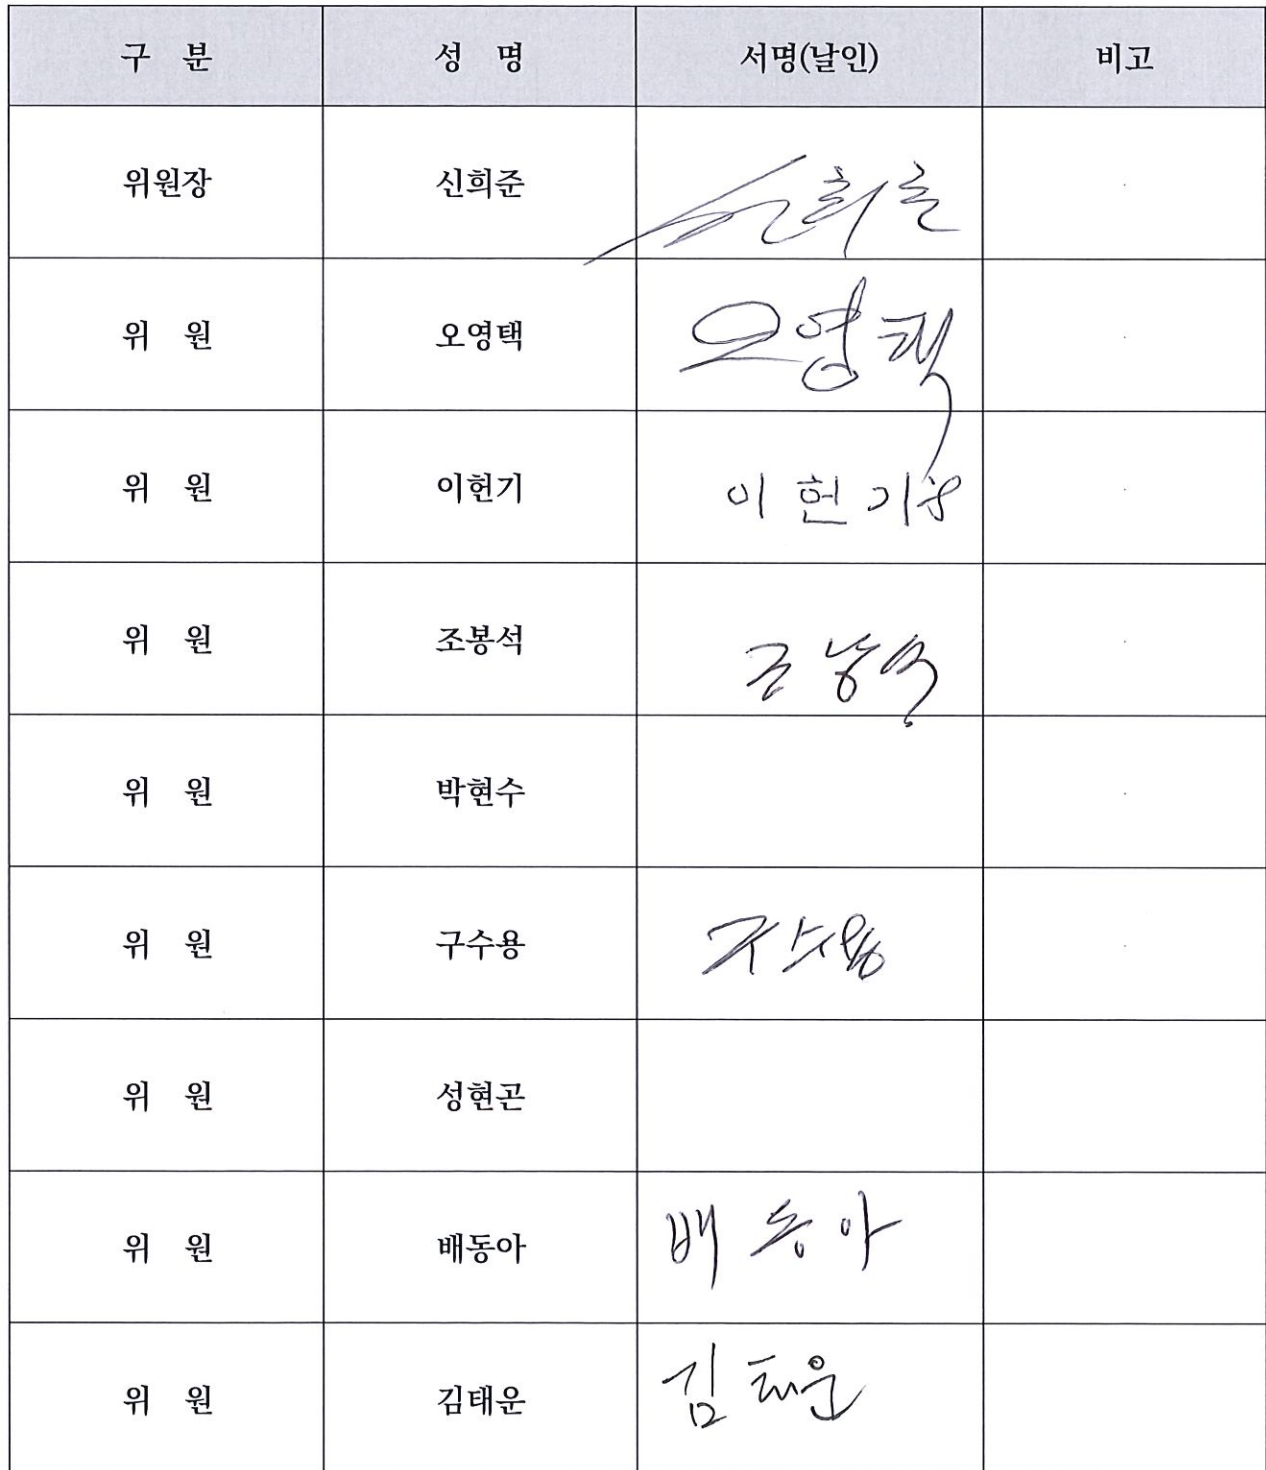 구 분 성 명 서명(날인) 비고
위원장 신희준 신희준
위 원 오영택 오영택
위 원 이헌기 이헌기
위 원 조봉석 조봉석
위 원 박현수
위 원 구수용 구수용
위 원 성현곤
위 원 배동아 배동아
위 원 김태운 김태운